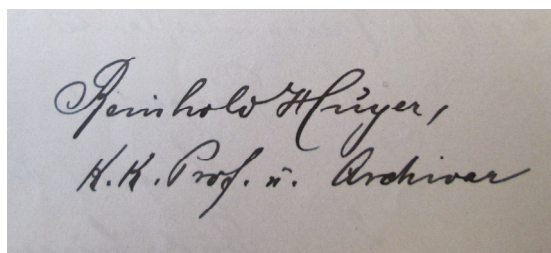 Reinhold Huyer,
K. K. Prof. u. Archivar